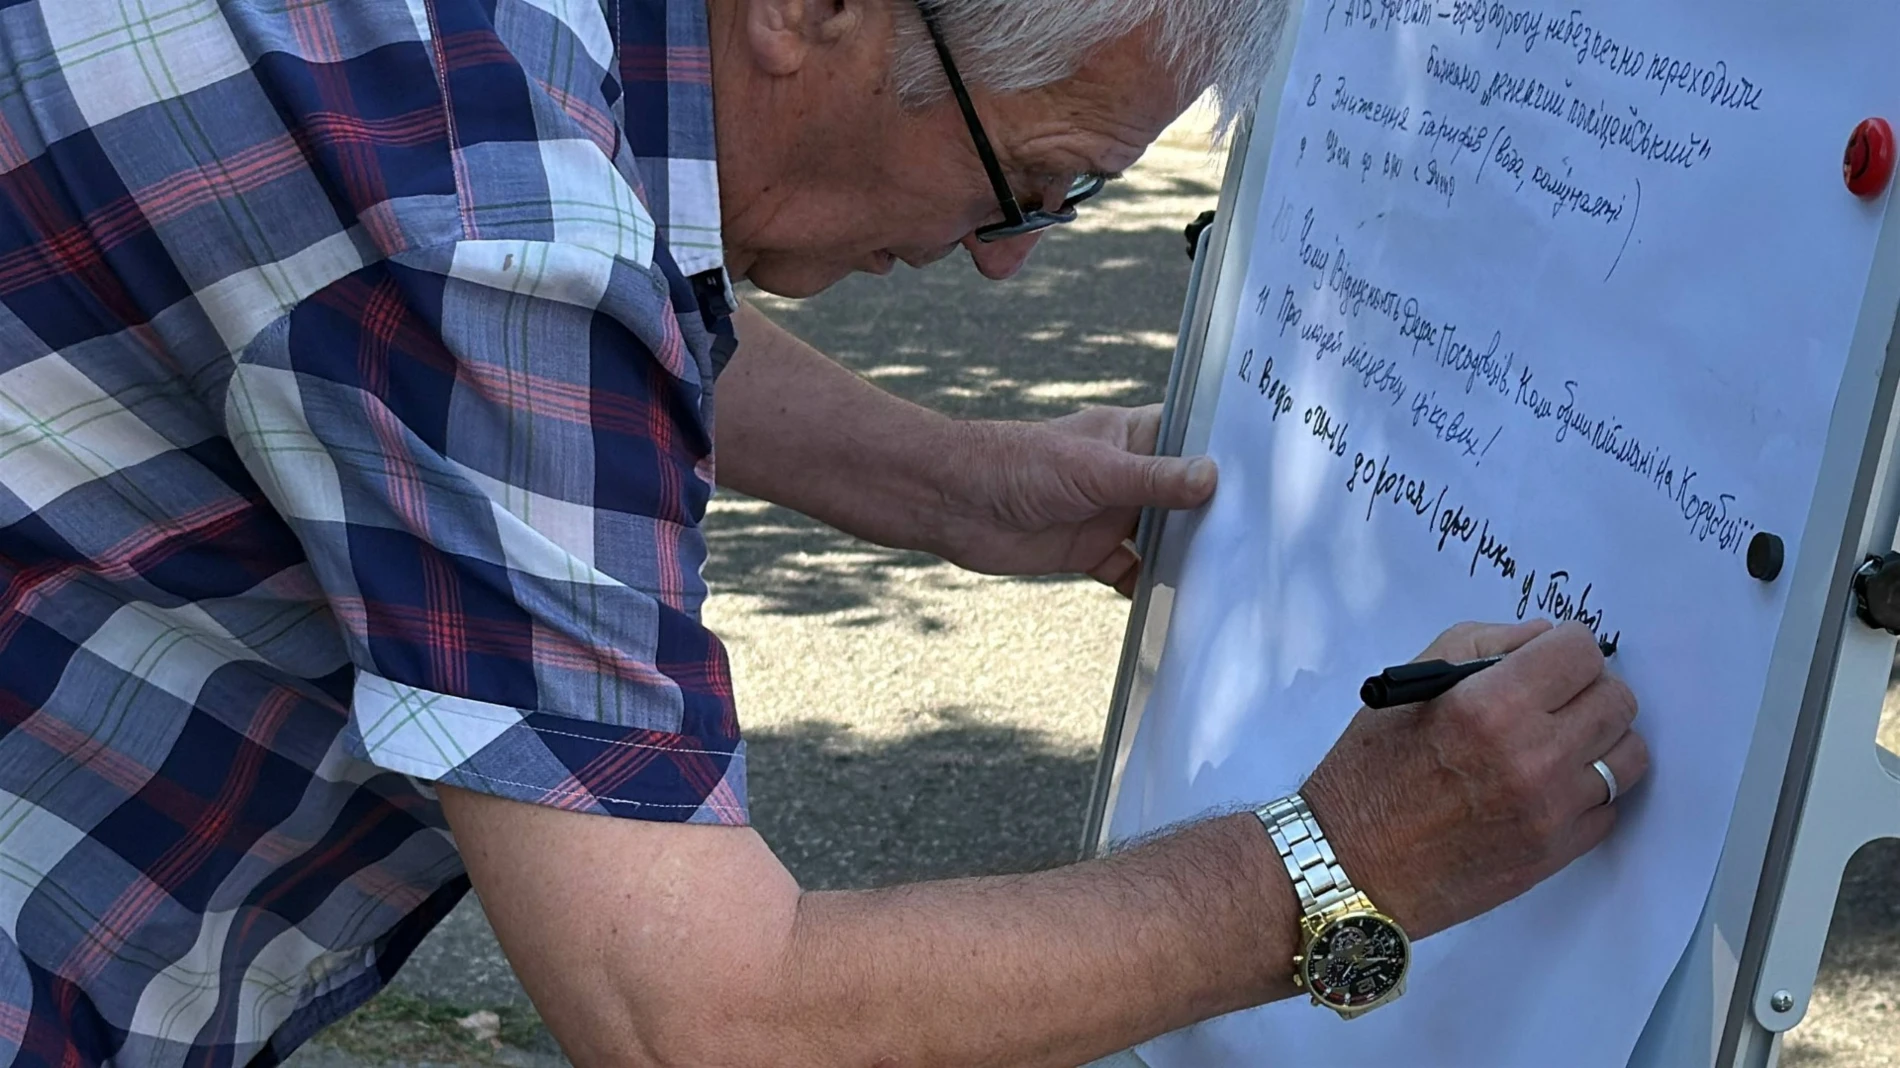 7 АТБ „Фрегат" – через дорогу небезпечно переходити
бажано „лежачий поліцейський"
8 Зниження тарифів (вода, комунальні).
10 Чому Відпускають Держ Посадовців, Коли були піймані на Корубції
11 Про людей місцевих цікавих!
12. Вода очень дорогая (две реки у